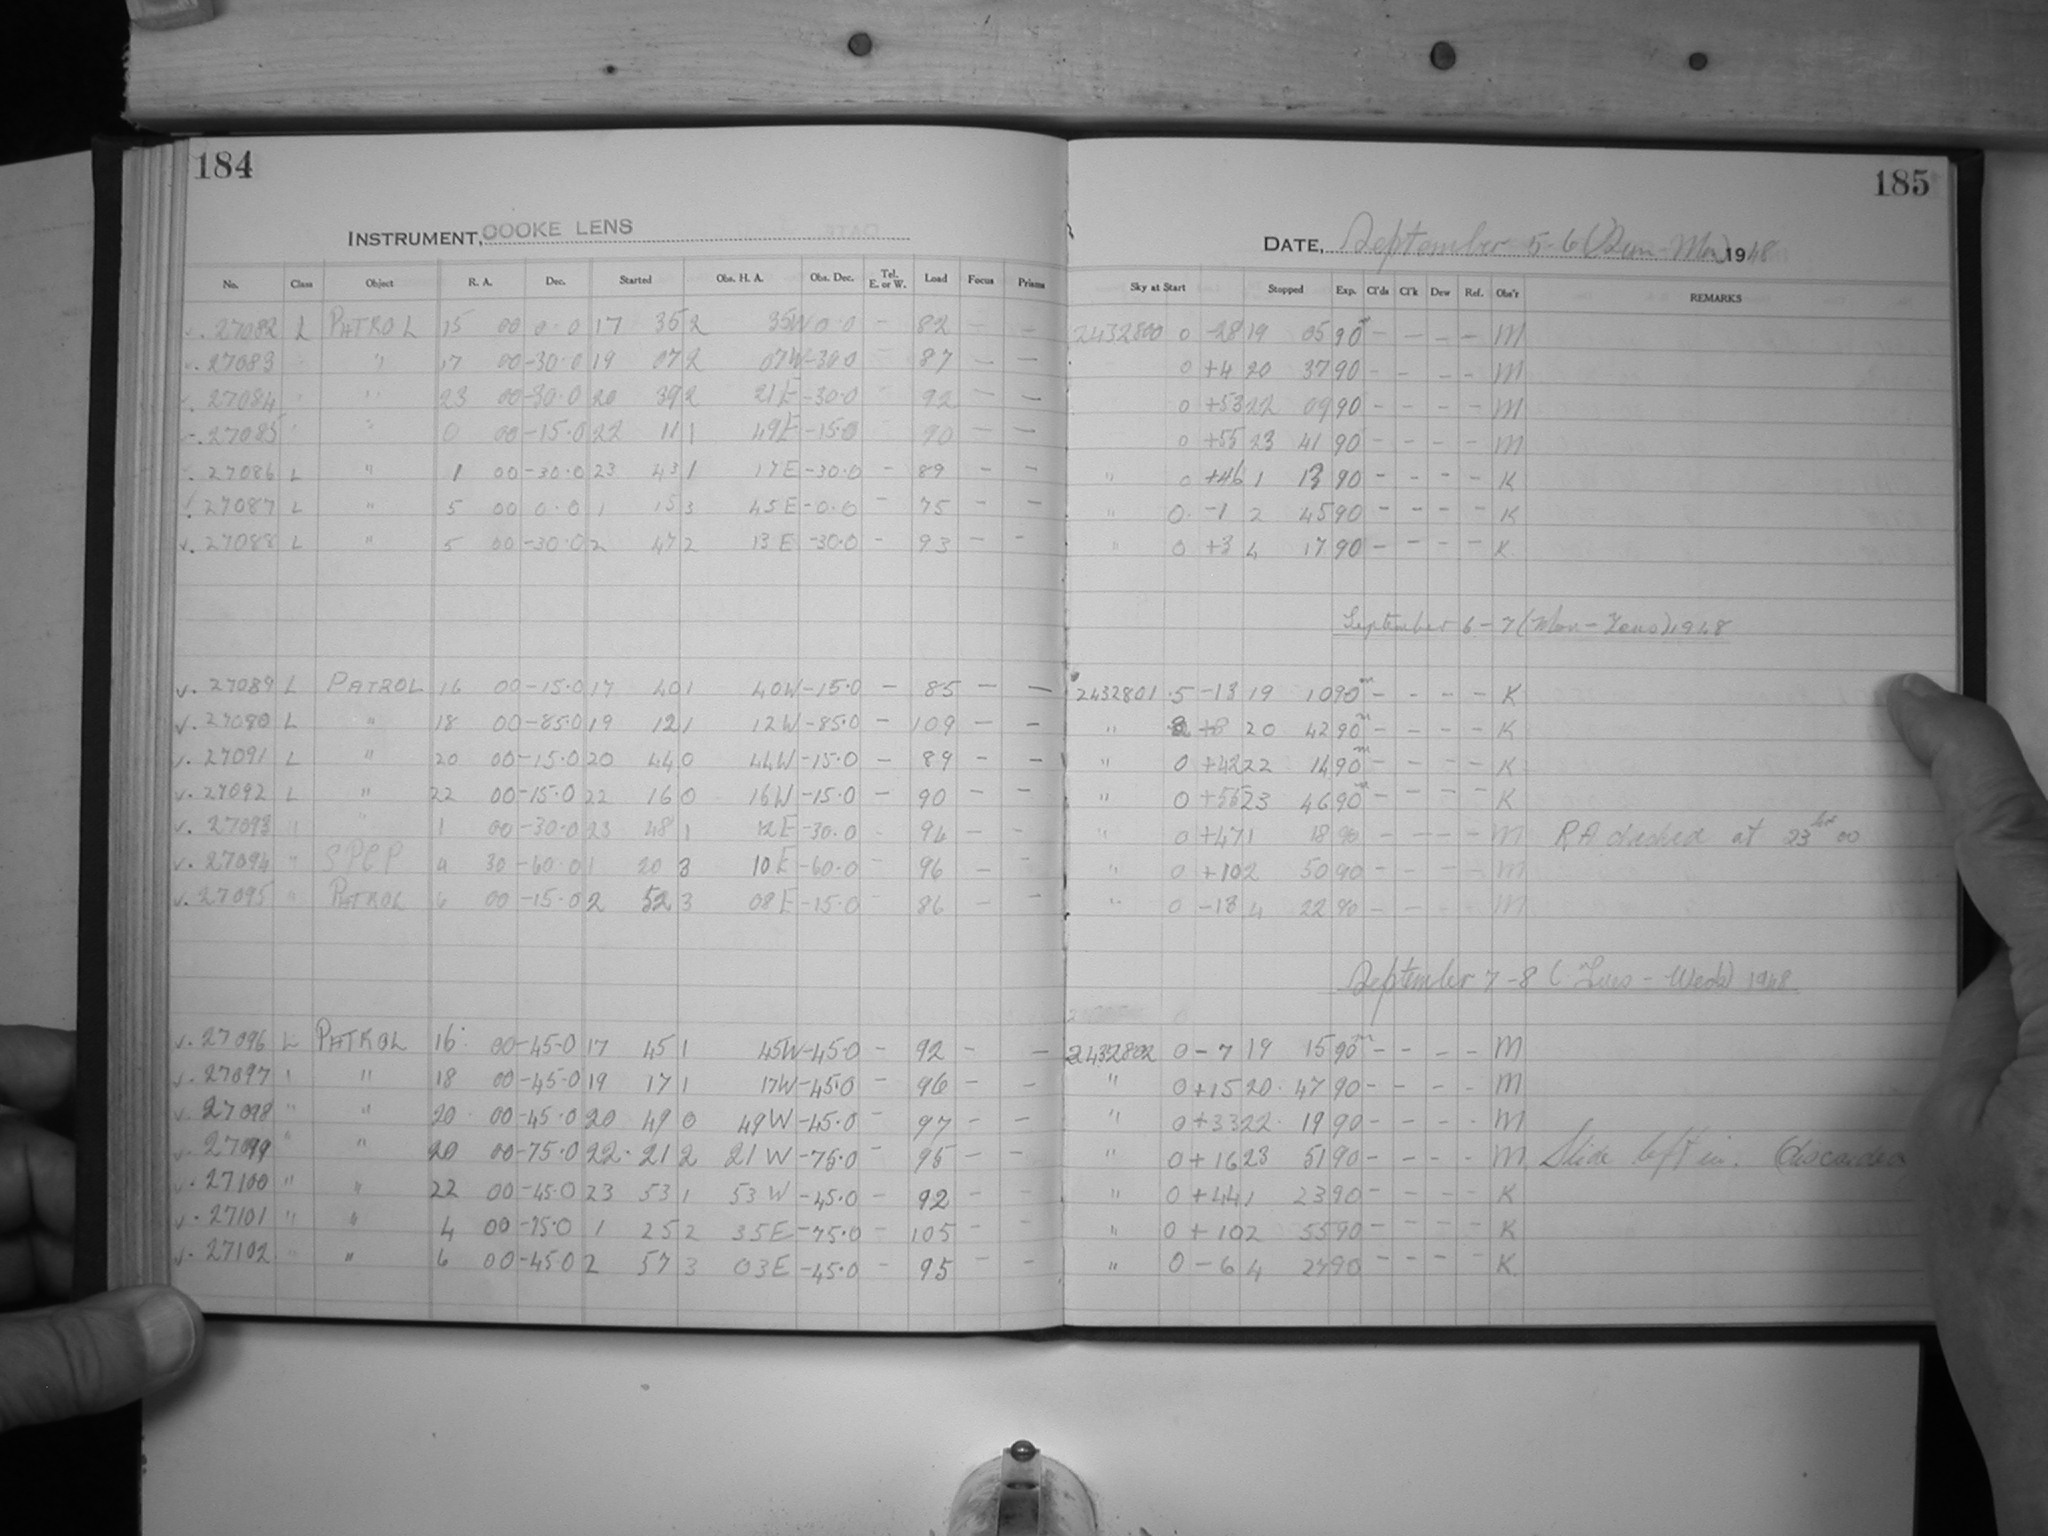 184
INSTRUMENT, COOKE LENS
No. Class Object R. A. Dec. Started Obs. H. A. Obs. Dec. Tel. E. or W. Load Focus Prisms
v. 27082 L PATROL 15 00 0.0 17 35 2 35W 0.0 - 82 - -
v. 27083 " " 17 00 -30.0 19 07 2 07W -30.0 87 - -
v. 27084 " " 23 00 -30.0 20 39 2 21E -30.0 - 92 - -
v. 27085 " " 0 00 -15.0 22 11 1 49E -15.0 90 - -
v. 27086 L " 1 00 -30.0 23 43 1 17E -30.0 - 89 - -
v. 27087 L " 5 00 0.0 1 15 3 45E -0.0 - 75 - -
v. 27088 L " 5 00 -30.0 2 47 2 13E -30.0 - 93 - -
v. 27089 L PATROL 16 00 -15.0 17 40 1 40W -15.0 - 85 - -
v. 27090 L " 18 00 -85.0 19 12 1 12W -85.0 - 109 - -
v. 27091 L " 20 00 -15.0 20 44 0 44W -15.0 - 89 - -
v. 27092 L " 22 00 -15.0 22 16 0 16W -15.0 - 90 - -
v. 27093 " " 1 00 -30.0 23 48 1 12E -30.0 - 94 - -
v. 27094 " SPCP 4 30 -60.0 1 20 3 10E -60.0 - 96 -
v. 27095 " PATROL 6 00 -15.0 2 52 3 08E -15.0 86 - -
v. 27096 L PATROL 16 00 -45.0 17 45 1 45W -45.0 - 92 - -
v. 27097 " " 18 00 -45.0 19 17 1 17W -45.0 - 96 - -
v. 27098 " " 20 00 -45.0 20 49 0 49W -45.0 - 97 - -
v. 27099 " " 20 00 -75.0 22 21 2 21W -75.0 - 95 - -
v. 27100 " " 22 00 -45.0 23 53 1 53W -45.0 - 92 - -
v. 27101 " " 4 00 -75.0 1 25 2 35E -75.0 - 105 - -
v. 27102 " " 6 00 -45.0 2 57 3 03E -45.0 - 95 - -
185
DATE, September 5-6 (Sun-Mon) 1948
Sky at Start Stopped Exp. Cl'ds Cl'k Dew Ref. Obs'r REMARKS
2432800 0 -28 19 05 90m - - - - M
0 +4 20 37 90 - - - - M
0 +53 22 09 90 - - - - M
0 +55 23 41 90 - - - - M
" 0 +46 1 13 90 - - - - K
" 0 -1 2 45 90 - - - - K
" 0 +3 4 17 90 - - - - K
September 6-7 (Mon-Tues) 1948
2432801 .5 -13 19 10 90m - - - - K
" +8 20 42 90m - - - - K
" 0 +42 22 14 90m - - - - K
" 0 +55 23 46 90m - - - - K
" 0 +47 1 18 90 - - - - M RA checked at 23hr 00
" 0 +10 2 50 90 - - - - M
" 0 -13 4 22 90 - - - - M
September 7-8 (Tues-Weds) 1948
2432802 0 -7 19 15 90m - - - - M
" 0 +15 20 47 90 - - - - M
" 0 +33 22 19 90 - - - - M
" 0 +16 23 51 90 - - - - M Slide left in. (discarded)
" 0 +44 1 23 90 - - - - K
" 0 +10 2 55 90 - - - - K
" 0 -6 4 27 90 - - - - K